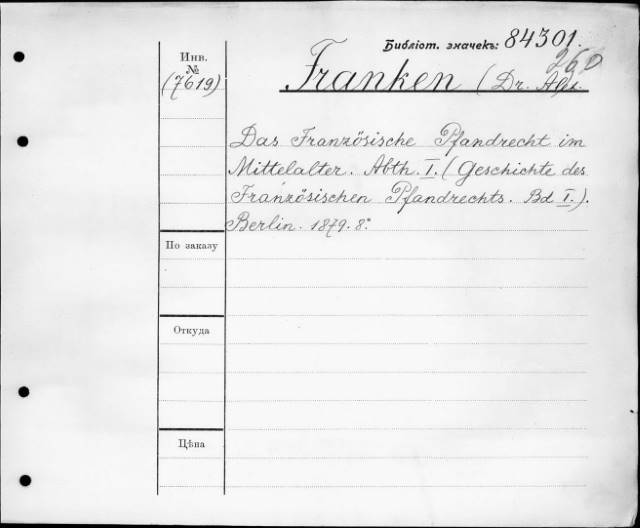 Библіот. значекъ: 84301.
260
Инв.
№
(7619)
Franken (Dr. Alx.
Das Französische Pfandrecht im
Mittelalter. Abth. I. (Geschichte des
Französischen Pfandrechts. Bd I.).
Berlin. 1879. 8º
По заказу
Откуда
Цѣна